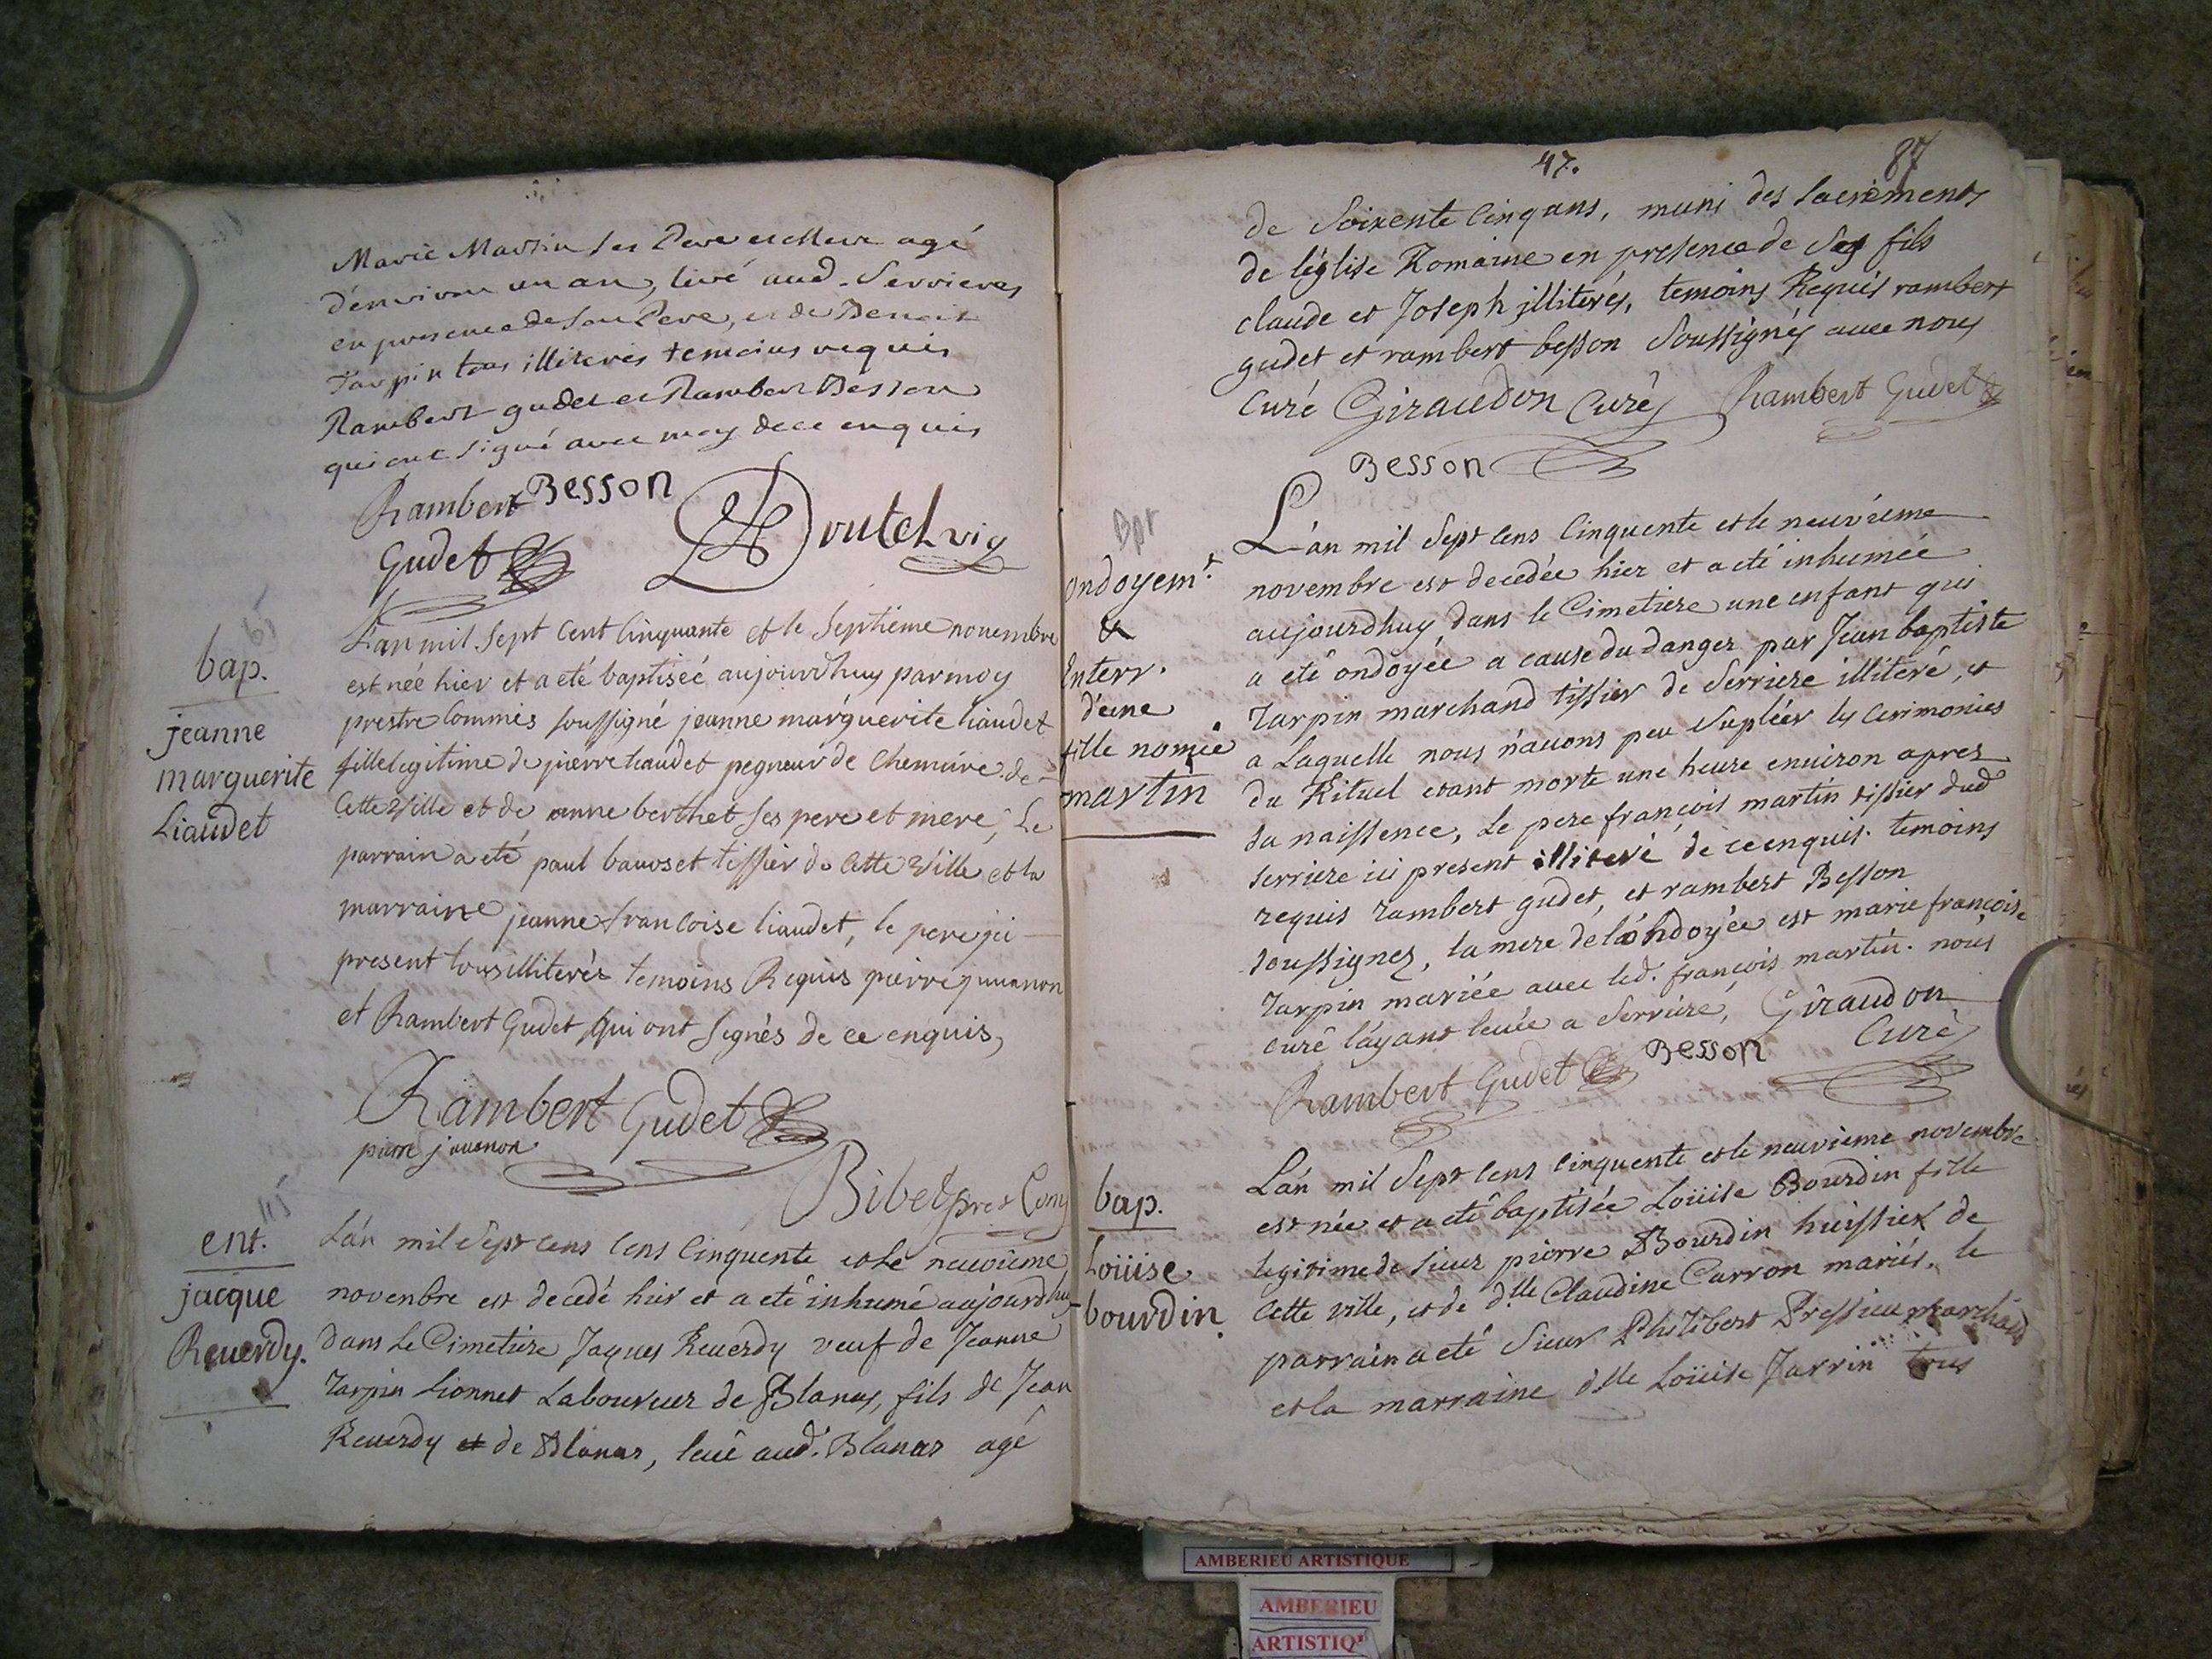 Marie Martin ses Pere et Mere agé
d'environ un an, levé aud. Serrieres
en presence de son Pere, et de Benoit
Tarpin tous illiterés temoins requis
Rambert gudet et Rambert Besson
qui ont signé avec moy de ce enquis
Rambert Besson
Gudet
bap.
jeanne
marguerite
Liaudet
L'an mil sept cent cinquante et le septieme novembre
est née hier et a eté baptiséé aujourdhuy par moy
prestre commis soussigné jeanne marguerite liaudet
fille legitime de pierre liaudet pegneur de chemvre de
cette ville et de anne berthet ses pere et mere, Le
parrain a eté paul bavoset tissier de cette ville et la
marraine jeanne francoise liaudet, le pere jci
present tous illiterés temoins Requis pierre juvanon
et Rambert Gudet qui ont signés de ce enquis,
Rambert Gudet
pierre jouenon
Bibet pret Com
ent.
jacque
Reverdy.
L'an mil sept cens cens cinquente et le neuvieme
novenbre est decedé hier et a eté inhumé aujourdhuy
dans le Cimetiere Jaques Reverdy veuf de Jeanne
Tarpin Lionnet Laboureur de Blanas, fils de Jean
Reverdy et de Blanas, levé aud. Blanas agé
47. 87
de soixente cinq ans, muni des sacrements
de l'église Romaine en presence de ses fils
claude et Joseph jlliterés, temoins Requis rambert
gudet et rambert besson soussignés avec nous
curé Giraudon curé Rambert Gudet
Besson
Bpt
ondoyemt.
&
Enterr.
d'une
fille nomée
martin
L'an mil sept cens cinquente et le neuvieme
novembre est decedée hier et a eté inhumée
aujourdhuy dans le Cimetiere une enfant qui
a eté ondoyée a cause du danger par Jean baptiste
Tarpin marchand tissier de Serriere illiteré, et
a Laquelle nous n'avons peu supléer les cerimonies
du Rituel etant morte une heure environ apres
sa naissence, Le pere françois martin tissier dud
serriere ici present illiteré de ce enquis. temoins
requis rambert gudet, et rambert Besson
soussignez, la mere de l'ondoyée est marie françoise
Tarpin mariée avec led. françois martin. nous
curé l'ayant levée a Serriere, Giraudon
curé
Rambert Gudet Besson
bap.
Loüise
bourdin.
L'an mil sept cens cinquente et le neuvieme novembre
est née et a eté baptisée Loüise Bourdin fille
legitime de sieur pierre Bourdin huissier de
cette ville, et de dlle Claudine Carron mariés, le
parrain a eté sieur Philibert Pressieu marchand
et la marraine dlle Loüise Jarrin tous
AMBERIEU ARTISTIQUE
AMBERIEU
ARTISTIQ